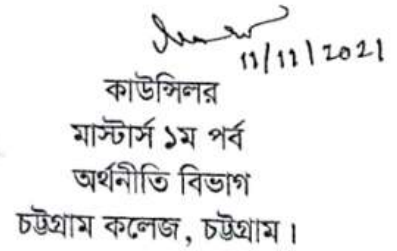 11/11/2021
কাউন্সিলর
মাস্টার্স ১ম পর্ব
অর্থনীতি বিভাগ
চট্টগ্রাম কলেজ, চট্টগ্রাম।